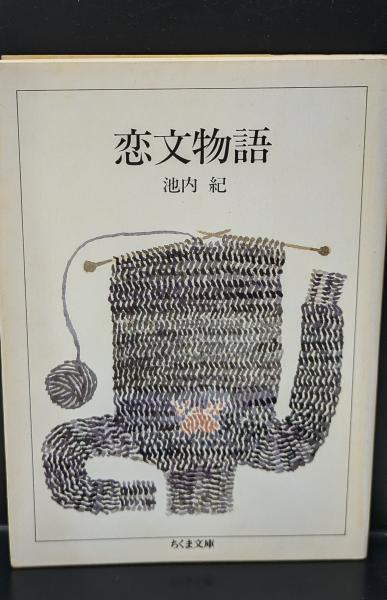 恋文物語
池内 紀
ちくま文庫